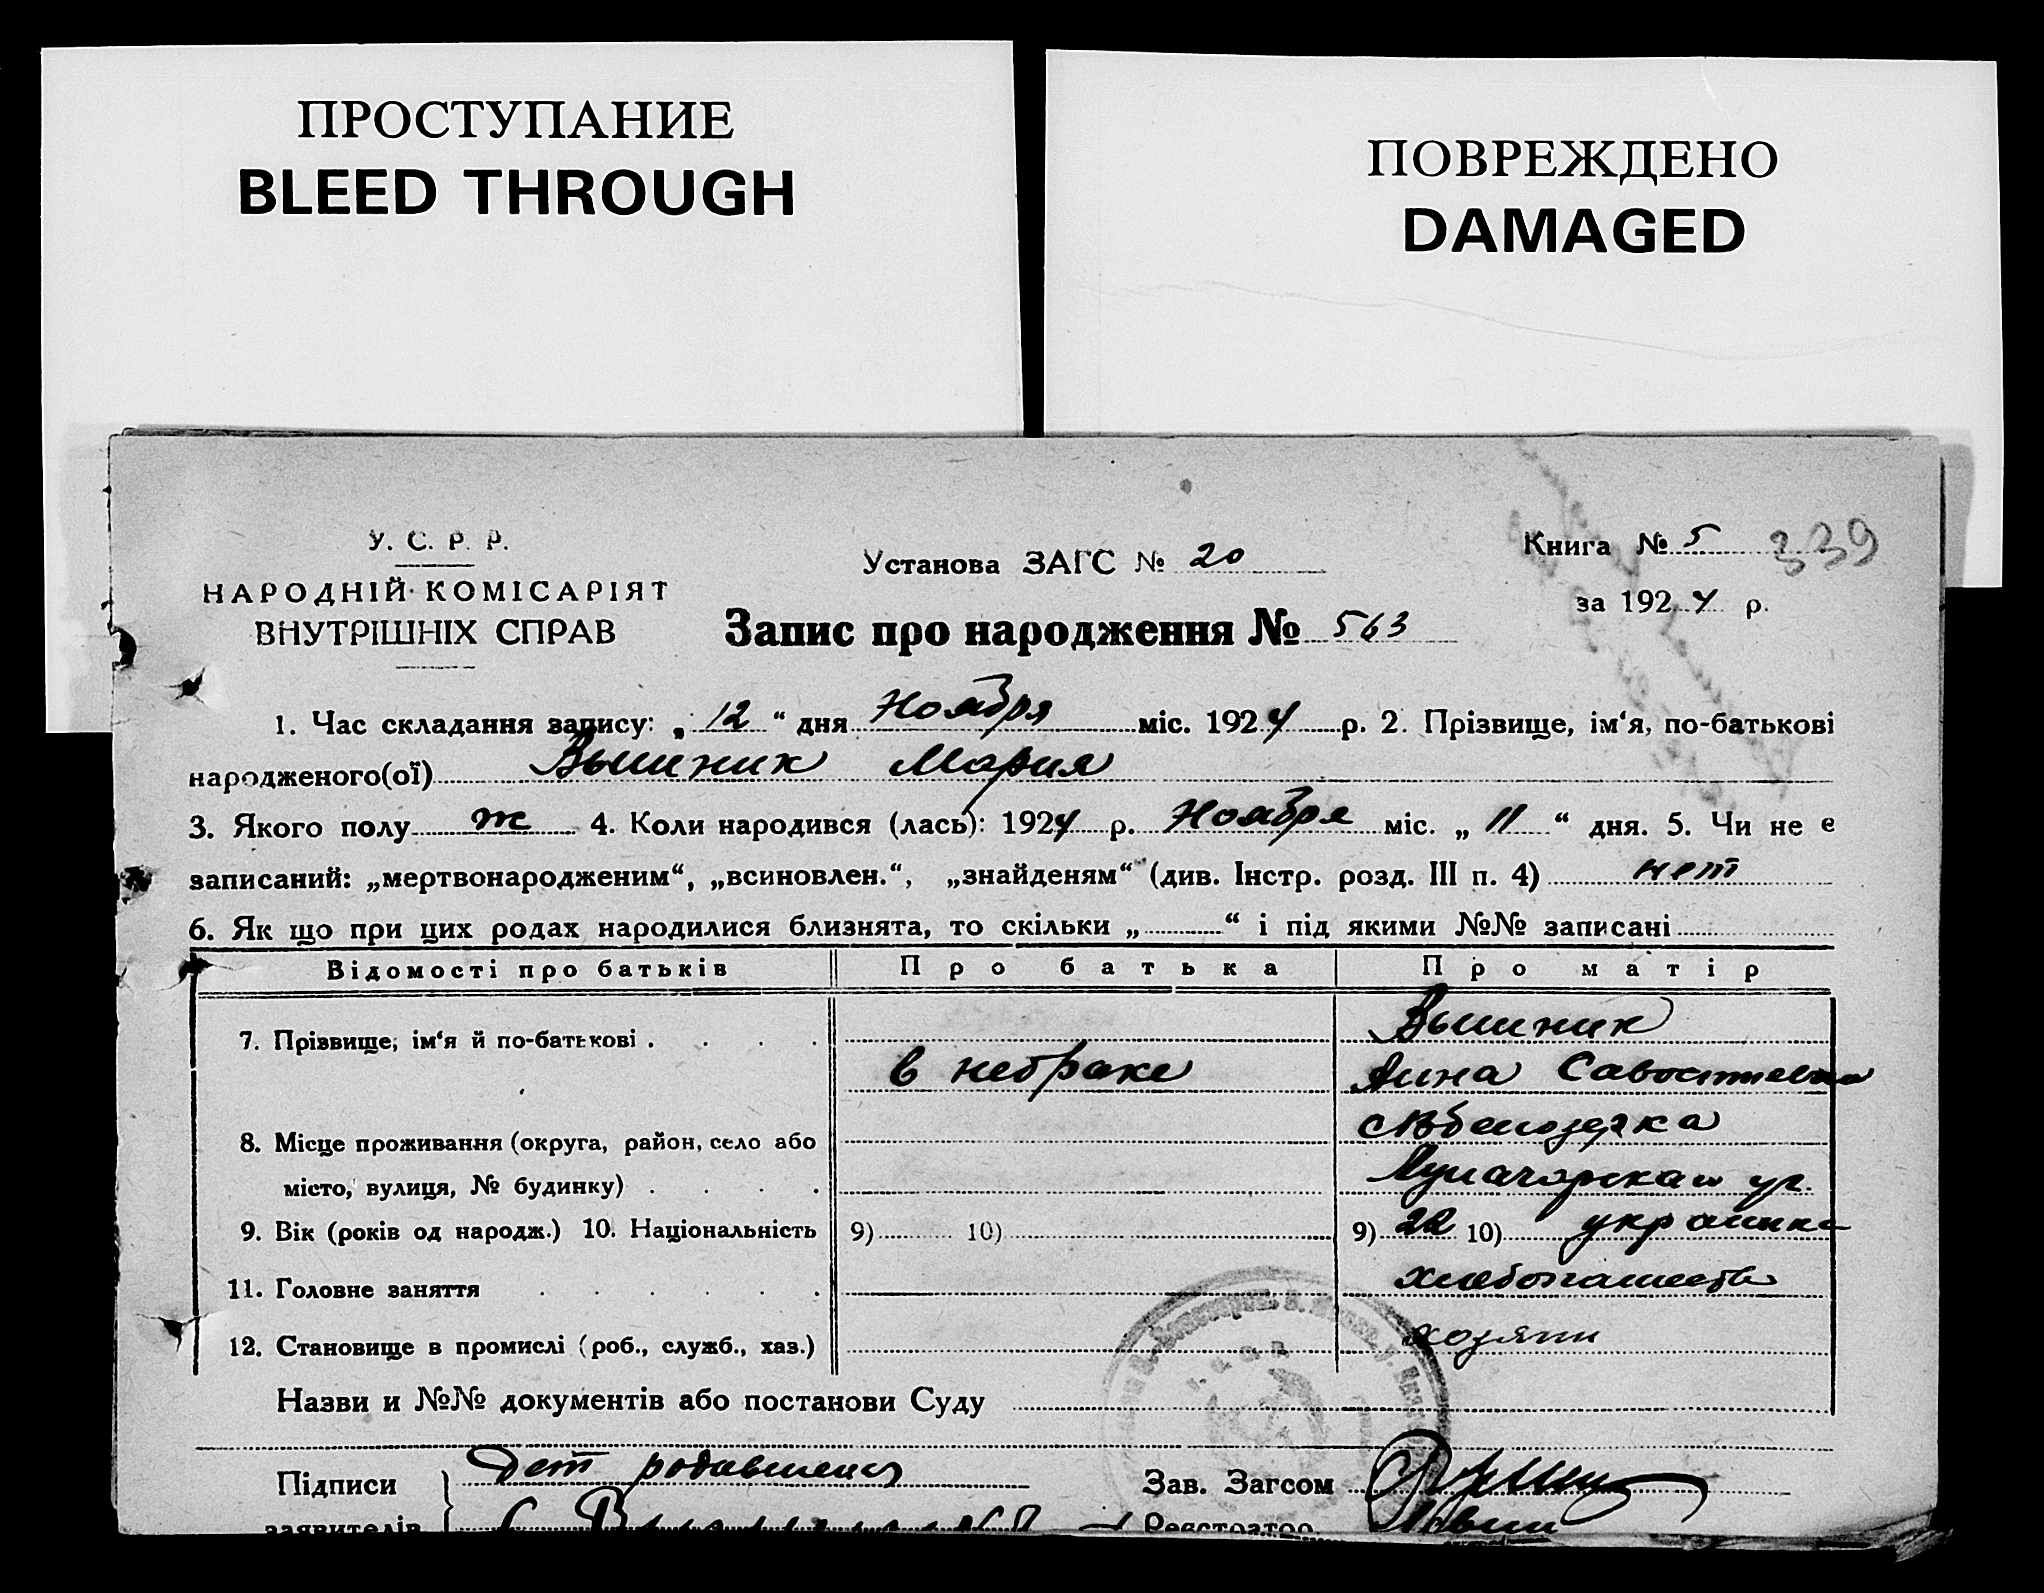 ПРОСТУПАНИЕ
BLEED THROUGH
ПОВРЕЖДЕНО
DAMAGED
У. С. Р. Р.
НАРОДНІЙ КОМІСАРІЯТ
ВНУТРІШНІХ СПРАВ
Установа ЗАГС № 20
Запис про народження № 563
Книга № 5 339
за 1924 р.
1. Час складання запису: „ 12 “ дня Ноября міс. 1924 р. 2. Прізвище, ім‘я, по-батькові
народженого(ої) Вышник Мария
3. Якого полу ж 4. Коли народився (лась): 1924 р. Ноября міс. „ 11 “ дня. 5. Чи не є
записаний: „мертвонародженим“, „всиновлен.“, „знайденям“ (див. Інстр. розд. III п. 4) нет
6. Як що при цих родах народилися близнята, то скільки „ “ і під якими №№ записані
Відомості про батьків Про батька Про матір
7. Прізвище, ім‘я й по-батькові . . . . Вышник
в небраке Анна Савостиевна
8. Місце проживання (округа, район, село або
місто, вулиця, № будинку) . . . . ул.
9. Вік (років од народж.) 10. Національність 9) 10) 9) 22 10) украинка
11. Головне заняття . . . . . .
12. Становище в промислі (роб., служб., хаз.) хозяин
Назви и №№ документів або постанови Суду
Підписи Зав. Загсом
заявителів Реєстратор